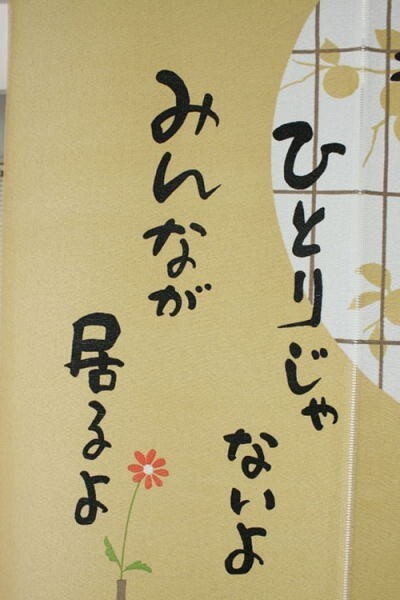 ひとりじゃ
ないよ
みんなが
居るよ